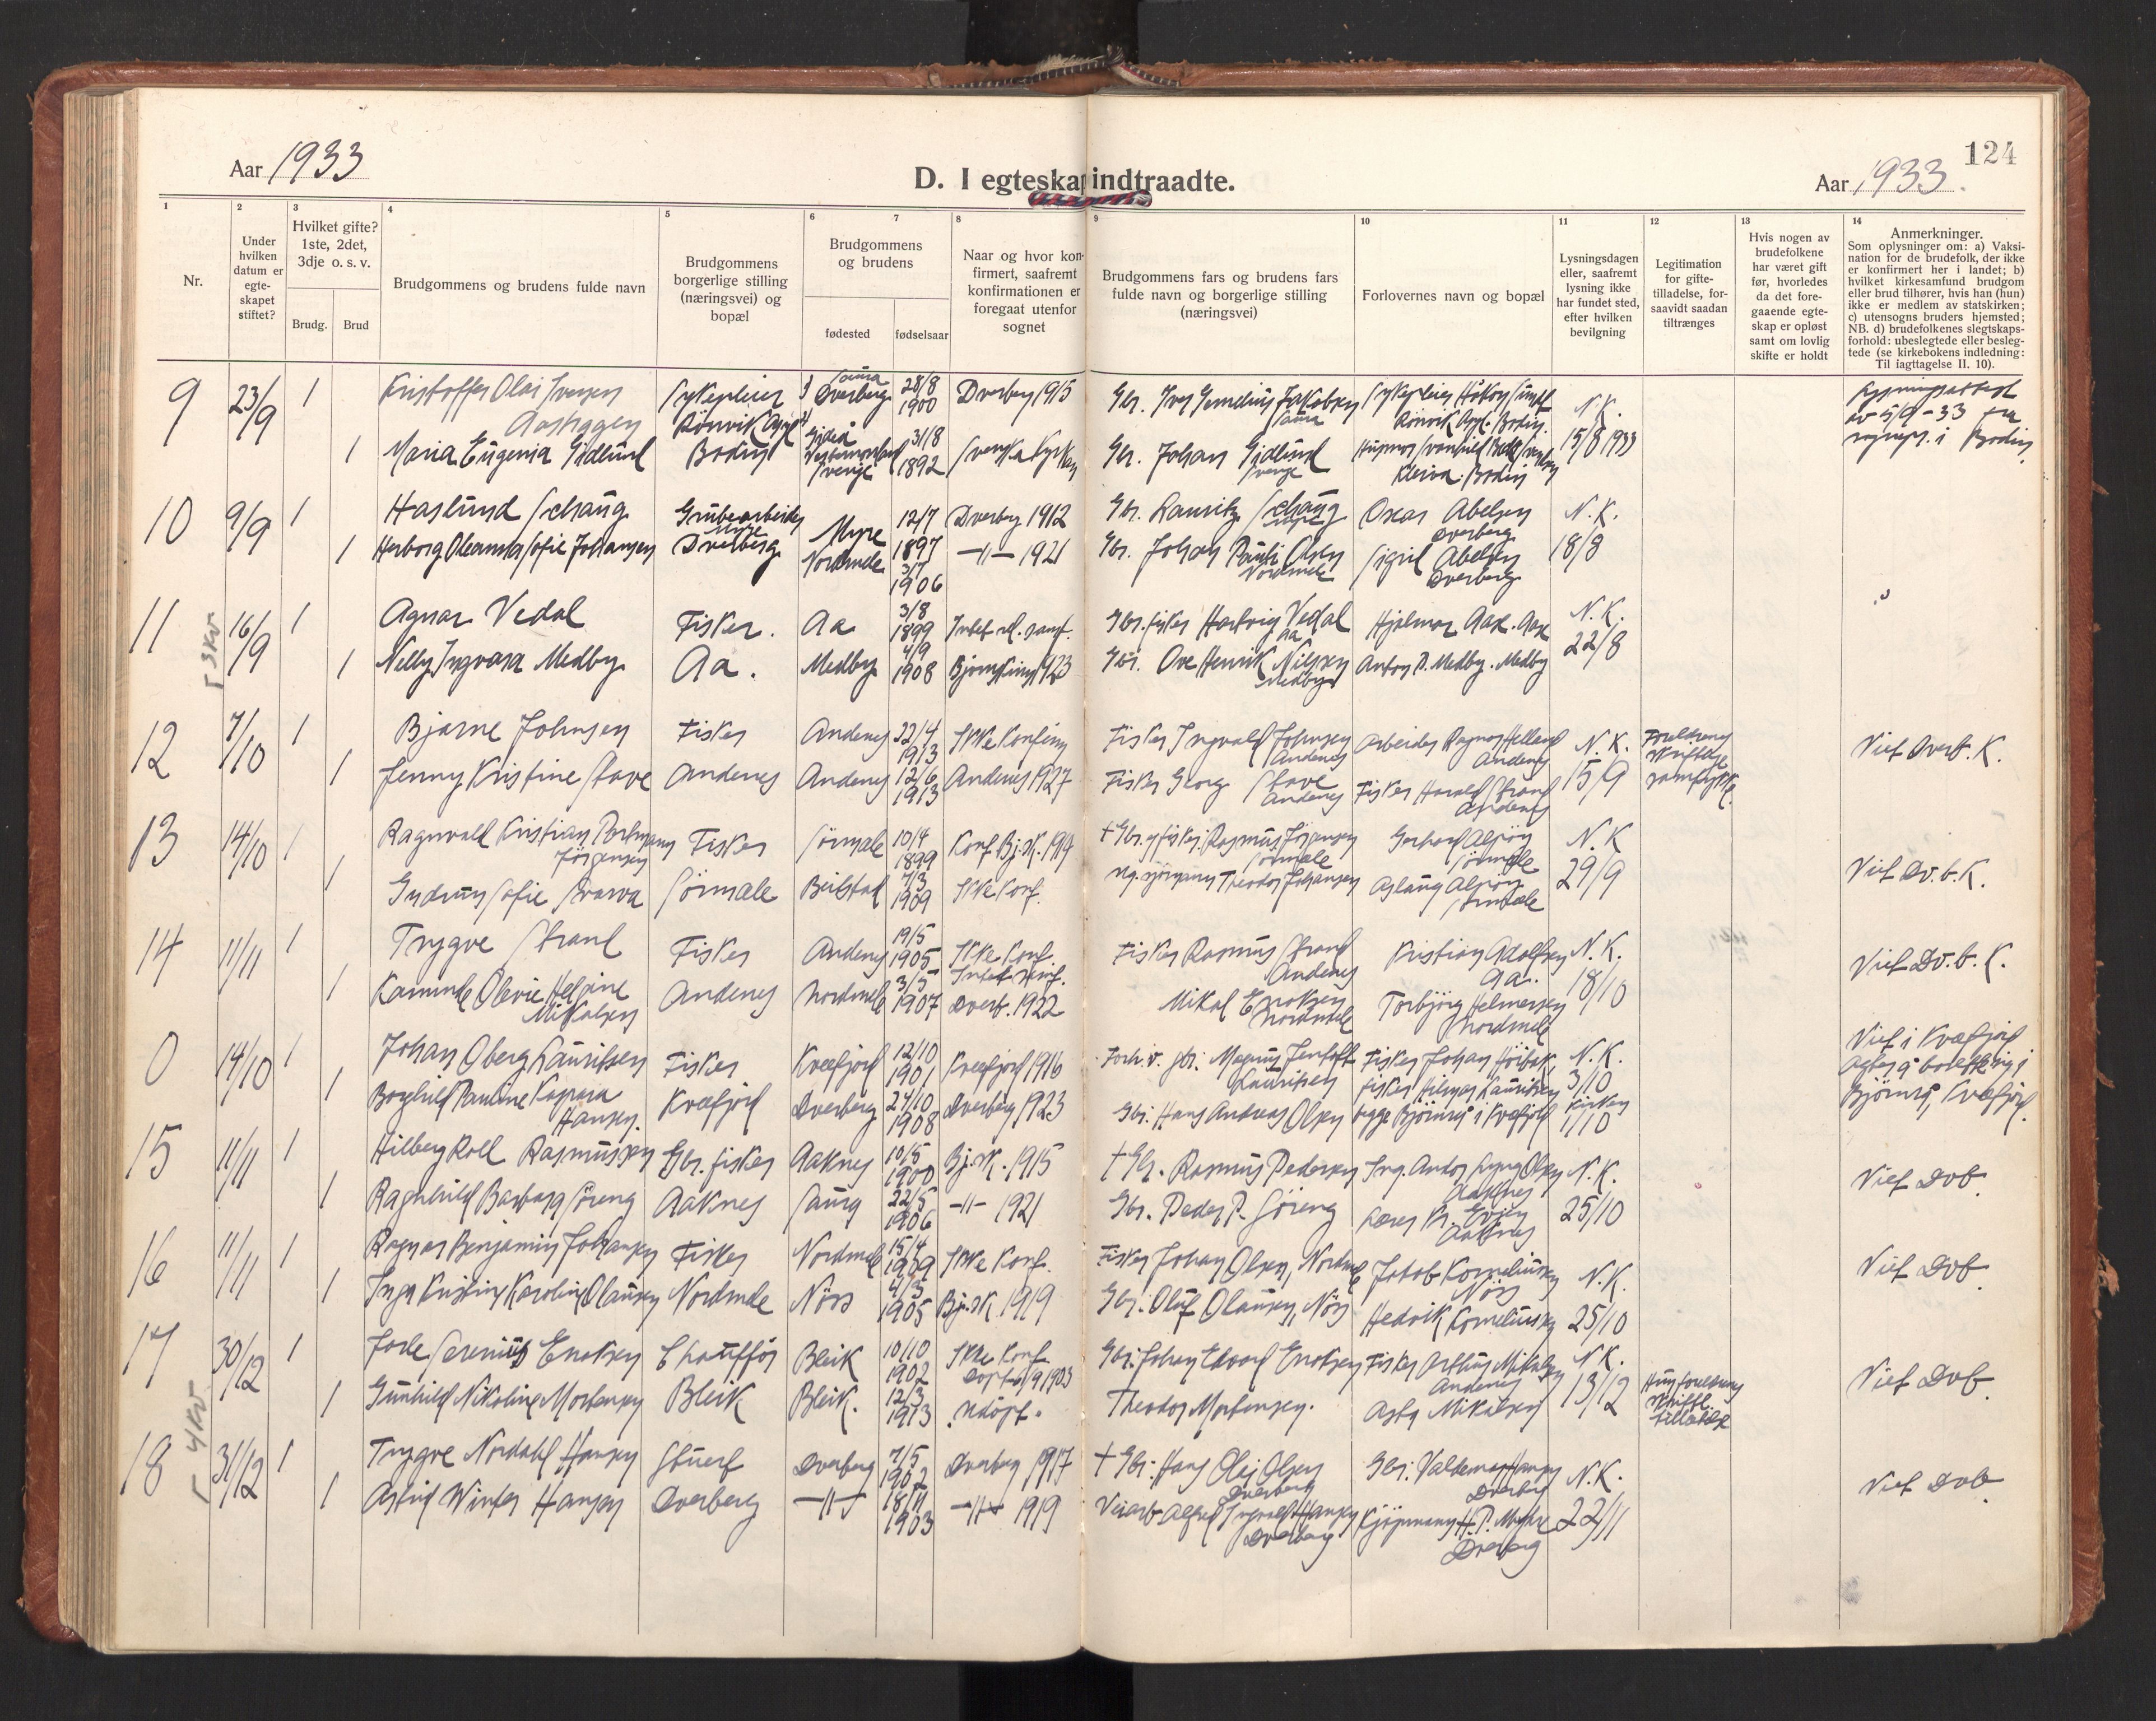 124
Aar 1933
D. I egteskap indtraadte.
Aar 1933.
1
Nr.
2
Under
hvilken
datum er
egte-
skapet
stiftet?
3
Hvilket gifte?
1ste, 2det,
3dje o. s. v.
Brudg.
Brud
4
Brudgommens og brudens fulde navn
5
Brudgommens
borgerlige stilling
(næringsvei) og
bopæl
6
7
Brudgommens
og brudens
fødested
fødselsaar
8
Naar og hvor kon-
firmert, saafremt
konfirmationen er
foregaat utenfor
sognet
9
Brudgommens fars og brudens fars
fulde navn og borgerlige stilling
(næringsvei)
10
Forlovernes navn og bopæl
11
Lysningsdagen
eller, saafremt
lysning ikke
har fundet sted,
efter hvilken
bevilgning
12
Legitimation
for gifte-
tilladelse, for-
saavidt saadan
tiltrænges
13
Hvis nogen av
brudefolkene
har været gift
før, hvorledes
da det fore-
gaaende egte-
skap er opløst
samt om lovlig
skifte er holdt
14
Anmerkninger.
Som oplysninger om: a) Vaksi-
nation for de brudefolk, der ikke
er konfirmert her i landet; b)
hvilket kirkesamfund brudgom
eller brud tilhører, hvis han (hun)
ikke er medlem av statskirken;
c) utensogns bruders hjemsted;
NB. d) brudefolkenes slegtskaps-
forhold: ubeslegtede eller besleg-
tede (se kirkebokens indledning:
Til iagttagelse II. 10).
9 23/9 1 Kristoffer Olai Iversen Sykepleier Dverberg 28/8 1900 Dverberg 1915 Gbr. Iver Jakobsen N.K.
1 Maria Eugenia Gidlund Bodin Sverige 31/8 1892 Svenske kyrkan Gbr. Johan Gidlund Sverige Bodin 15/8 1933
av 5/9-33 fra
sognepr. i Bodin.
10 9/9 1 Haslund Schaug Grubearbeider Myre 12/7 1897 Dverberg 1912 Gbr. Lauritz Schaug Oscar Abelsen Dverberg N.K.
1 Herborg Oleanna Sofie Johansen Dverberg Nordmele 3/7 1906 -"- 1921 Gbr. Johan Pauli Olsen Nordmele Sigrid Abelsen Dverberg 18/8
11 16/9 1 Agnar Vedal Fisker. Aa 3/8 1899 Gbr. fisker Hartvig Vedal Aa Hjalmar Aase. Aase N.K.
1 Nelly Ingvara Medby Aa. Medby 4/9 1908 Bjørnskinn 1923 Gbr. Ove Henrik Nilsen Medby Anton P. Medby. Medby 22/8
12 7/10 1 Bjarne Johnsen Fisker Andenes 22/4 1913 Ikke konfirm Fisker Ingvald Johnsen Andenes Arbeider Ragnar Helland Andenes N.K. Viet Dverb. K.
1 Jenny Kristine Stave Andenes Andenes 12/6 1913 Andenes 1927 Fisker Georg Stave Andenes Fisker Harald Strand Andenes 15/9
13 14/10 1 Ragnvald Kristian Jørgensen Fisker Sørmele 10/4 1899 Konf. Bj.sk. 1914 + Gbr. og fisker Rasmus Jørgensen Sørmele Gerhard Alsjøg Sørmele N.K
1 Gudrun Sofie Sørmele Beitstad 7/3 1909 Ikke konf. Theodor Johansen Aslaug Sørmele 29/9 Viet Dv.b.K.
14 11/11 1 Trygve Strand Fisker Andenes 19/5 1905 Ikke konf. Fisker Rasmus Strand Andenes Kristian Adolfsen Aa. N.K. Viet Dv.b.K.
1 Olevie Helsine Mikalsen Andenes Nordmele 3/5 1907 Dverb. 1922 Mikal Enoksen Nordmele Torbjørg Helmersen Nordmele 18/10
0 14/10 1 Johan Oberg Lauritsen Fisker Kvæfjord 12/10 1901 Kvæfjord 1916 Magnus Jentoft Lauritsen Fisker Johan N.K. Viet i Kvæfjord
1 Borghild Pauline Kaspara Hansen. Kvæfjord Dverberg 24/10 1908 Dverberg 1923 Gbr. Hans Andreas Olsen fisker Hilmar Lauritsen begge Bjørnrå i Kvæfjord 3/10 1/10 Bjørnrå, Kvæfjord.
15 11/11 1 Hilberg Roll Rasmussen Gbr. fisker Aaknes 10/5 1900 Bj.sk. 1915 + Gbr. Rasmus Pedersen Aaknes N.K. Viet Dvb.
1 Ragnhild Barbara Søreng Aaknes Saura 22/5 1906 -"- 1921 Gbr. Peder P. Søreng Lærer Kr. Evjen Aaknes 25/10
16 11/11 1 Ragnar Benjamin Johansen Fisker Nordmele 15/4 1909 Ikke konf. Fisker Johan Olsen, Nordmele Jakob Korneliussen Nøss N.K. Viet Dvb.
1 Inga Kristine Karoline Olausen Nordmele Nøss 4/3 1905 Bj.sk 1919 Gbr. Oluf Olausen, Nøss Hedvik Korneliussen 25/10
17 30/12 1 Jarle Serenius Enoksen Chauffør Bleik 10/10 1902 Ikke konf. Døpt 6/9 1903 Gbr. Johan Edvard Enoksen Fisker Arthur Mikalsen Andenes N.K. Viet Dvb.
1 Gunhild Nikoline Mortensen Bleik Bleik. 12/3 1913 Udøpt. Theodor Mortensen. Asta Mikalsen 13/12
18 31/12 1 Trygve Nordahl Hansen Stuert Dverberg 7/5 1902 Dverberg 1917 + Gbr. Hans Olai Olsen Dverberg Gbr. Valdemar Hansen Dverberg N.K. Viet Dvb.
1 Astrid Winter Hansen Dverberg -"- 18/11 1903 -"- 1919 Veiarb. Alfred Ingvald Hansen Dverberg Kjøpmann H.P. Myhre Dverberg 22/11